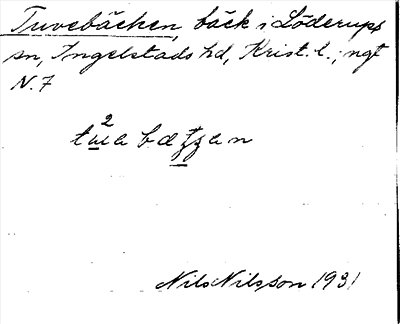 Tuvebäcken, bäck i Löderups
sn, Ingelstads hd, Krist. l.; ngt
N. 7
2
tɯa bæʒʒan
Nils Nilsson 1931